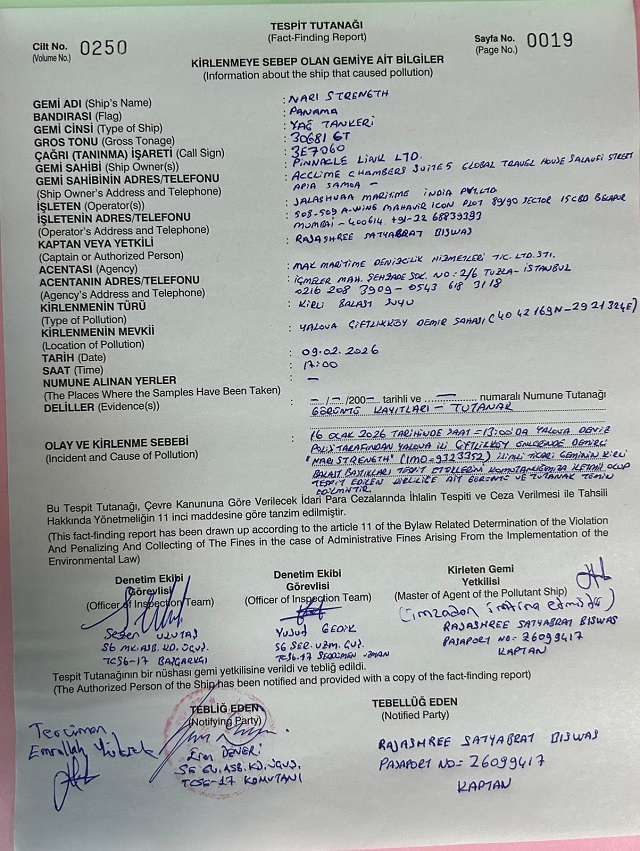 TESPİT TUTANAĞI
(Fact-Finding Report)
Cilt No. 0250
(Volume No.)
Sayfa No. 0019
(Page No.)
KİRLENMEYE SEBEP OLAN GEMİYE AİT BİLGİLER
(Information about the ship that caused pollution)
GEMİ ADI (Ship's Name) : NARI STRENGTH
BANDIRASI (Flag) : PANAMA
GEMİ CİNSİ (Type of Ship) : YAĞ TANKERİ
GROS TONU (Gross Tonage) : 30681 GT
ÇAĞRI (TANINMA) İŞARETİ (Call Sign) : 3E7060
GEMİ SAHİBİ (Ship Owner(s)) : PINNACLE LINK LTD.
GEMİ SAHİBİNİN ADRES/TELEFONU : ACCLIME CHAMBERS SUITE 5 GLOBAL TRAVEL HOUSE SALAVGI STREET
(Ship Owner's Address and Telephone) APIA SAMOA -
İŞLETEN (Operator(s)) : JALASHVAA MARITIME INDIA PVT.LTD
İŞLETENİN ADRES/TELEFONU : 508-509 A-WING MAHAVIR ICON PLOT 89/90 SECTOR 15 CBD BELAPUR
(Operator's Address and Telephone) MUMBAI - 400614 +91-22 66839393
KAPTAN VEYA YETKİLİ : RAJASHREE SATYABRAT BISWAS
(Captain or Authorized Person)
ACENTASI (Agency) : MAK MARITIME DENİZCİLİK HİZMETLERİ TİC. LTD. ŞTİ.
ACENTANIN ADRES/TELEFONU : İÇMELER MAH. SEHZADE SOK. NO: 2/6 TUZLA - İSTANBUL
(Agency's Address and Telephone) 0216 208 3909 - 0543 618 3118
KİRLENMENİN TÜRÜ : KİRLİ BALAST SUYU
(Type of Pollution)
KİRLENMENİN MEVKİİ : YALOVA ÇİFTLİKKÖY DEMİR SAHASI (40 42 169N - 29 21 324E)
(Location of Pollution)
TARİH (Date) : 09.02.2026
SAAT (Time) : 17:00
NUMUNE ALINAN YERLER : —
(The Places Where the Samples Have Been Taken)
DELİLLER (Evidence(s)) : – / – /200– tarihli ve — numaralı Numune Tutanağı
GÖRÜNTÜ KAYITLARI - TUTANAK
OLAY VE KİRLENME SEBEBİ : 16 OCAK 2026 TARİHİNDE SAAT = 13:00'DA YALOVA DENİZ
(Incident and Cause of Pollution) POLİSİ TARAFINDAN YALOVA İLİ ÇİFTLİKKÖY ÖNLERİNDE DEMİRLİ
"NARI STRENGTH" (IMO=9323352) İSİMLİ TİCARİ GEMİNİN KİRLİ
BALAST BASTIKLARI TESPİT ETTİKLERİNİ KOMUTANLIĞIMIZA İLETMİŞ OLUP
TESPİT EDİLEN KİRLİLİĞE AİT GÖRÜNTÜ VE TUTANAK TEMİN
EDİLMİŞTİR.
Bu Tespit Tutanağı, Çevre Kanununa Göre Verilecek İdari Para Cezalarında İhlalin Tespiti ve Ceza Verilmesi ile Tahsili
Hakkında Yönetmeliğin 11 inci maddesine göre tanzim edilmiştir.
(This fact-finding report has been drawn up according to the article 11 of the Bylaw Related Determination of the Violation
And Penalizing And Collecting of The Fines in the case of Administrative Fines Arising From the Implementation of the
Environmental Law)
Denetim Ekibi
Görevlisi
(Officer of Inspection Team)
Sezen ULUTAŞ
SG MK.ASB.KD.ÜÇVŞ.
TCSG-17 BAŞÇARKÇI
Denetim Ekibi
Görevlisi
(Officer of Inspection Team)
Yusuf GEDİK
SG SER.UZM.ÇVŞ.
TCSG-17 SERDÜMEN UZMAN
Kirleten Gemi
Yetkilisi
(Master of Agent of the Pollutant Ship)
(imzadan imtina etmiştir)
RAJASHREE SATYABRAT BISWAS
PASAPORT NO: 26099417
KAPTAN
Tespit Tutanağının bir nüshası gemi yetkilisine verildi ve tebliğ edildi.
(The Authorized Person of the Ship has been notified and provided with a copy of the fact-finding report)
TEBLİĞ EDEN
(Notifying Party)
Eren DENERİ
SG GV.ASB.KD.ÜÇVŞ.
TCSG-17 KOMUTANI
TEBELLÜĞ EDEN
(Notified Party)
RAJASHREE SATYABRAT BISWAS
PASAPORT NO: 26099417
KAPTAN
Tercüman
Emrullah Yüksek